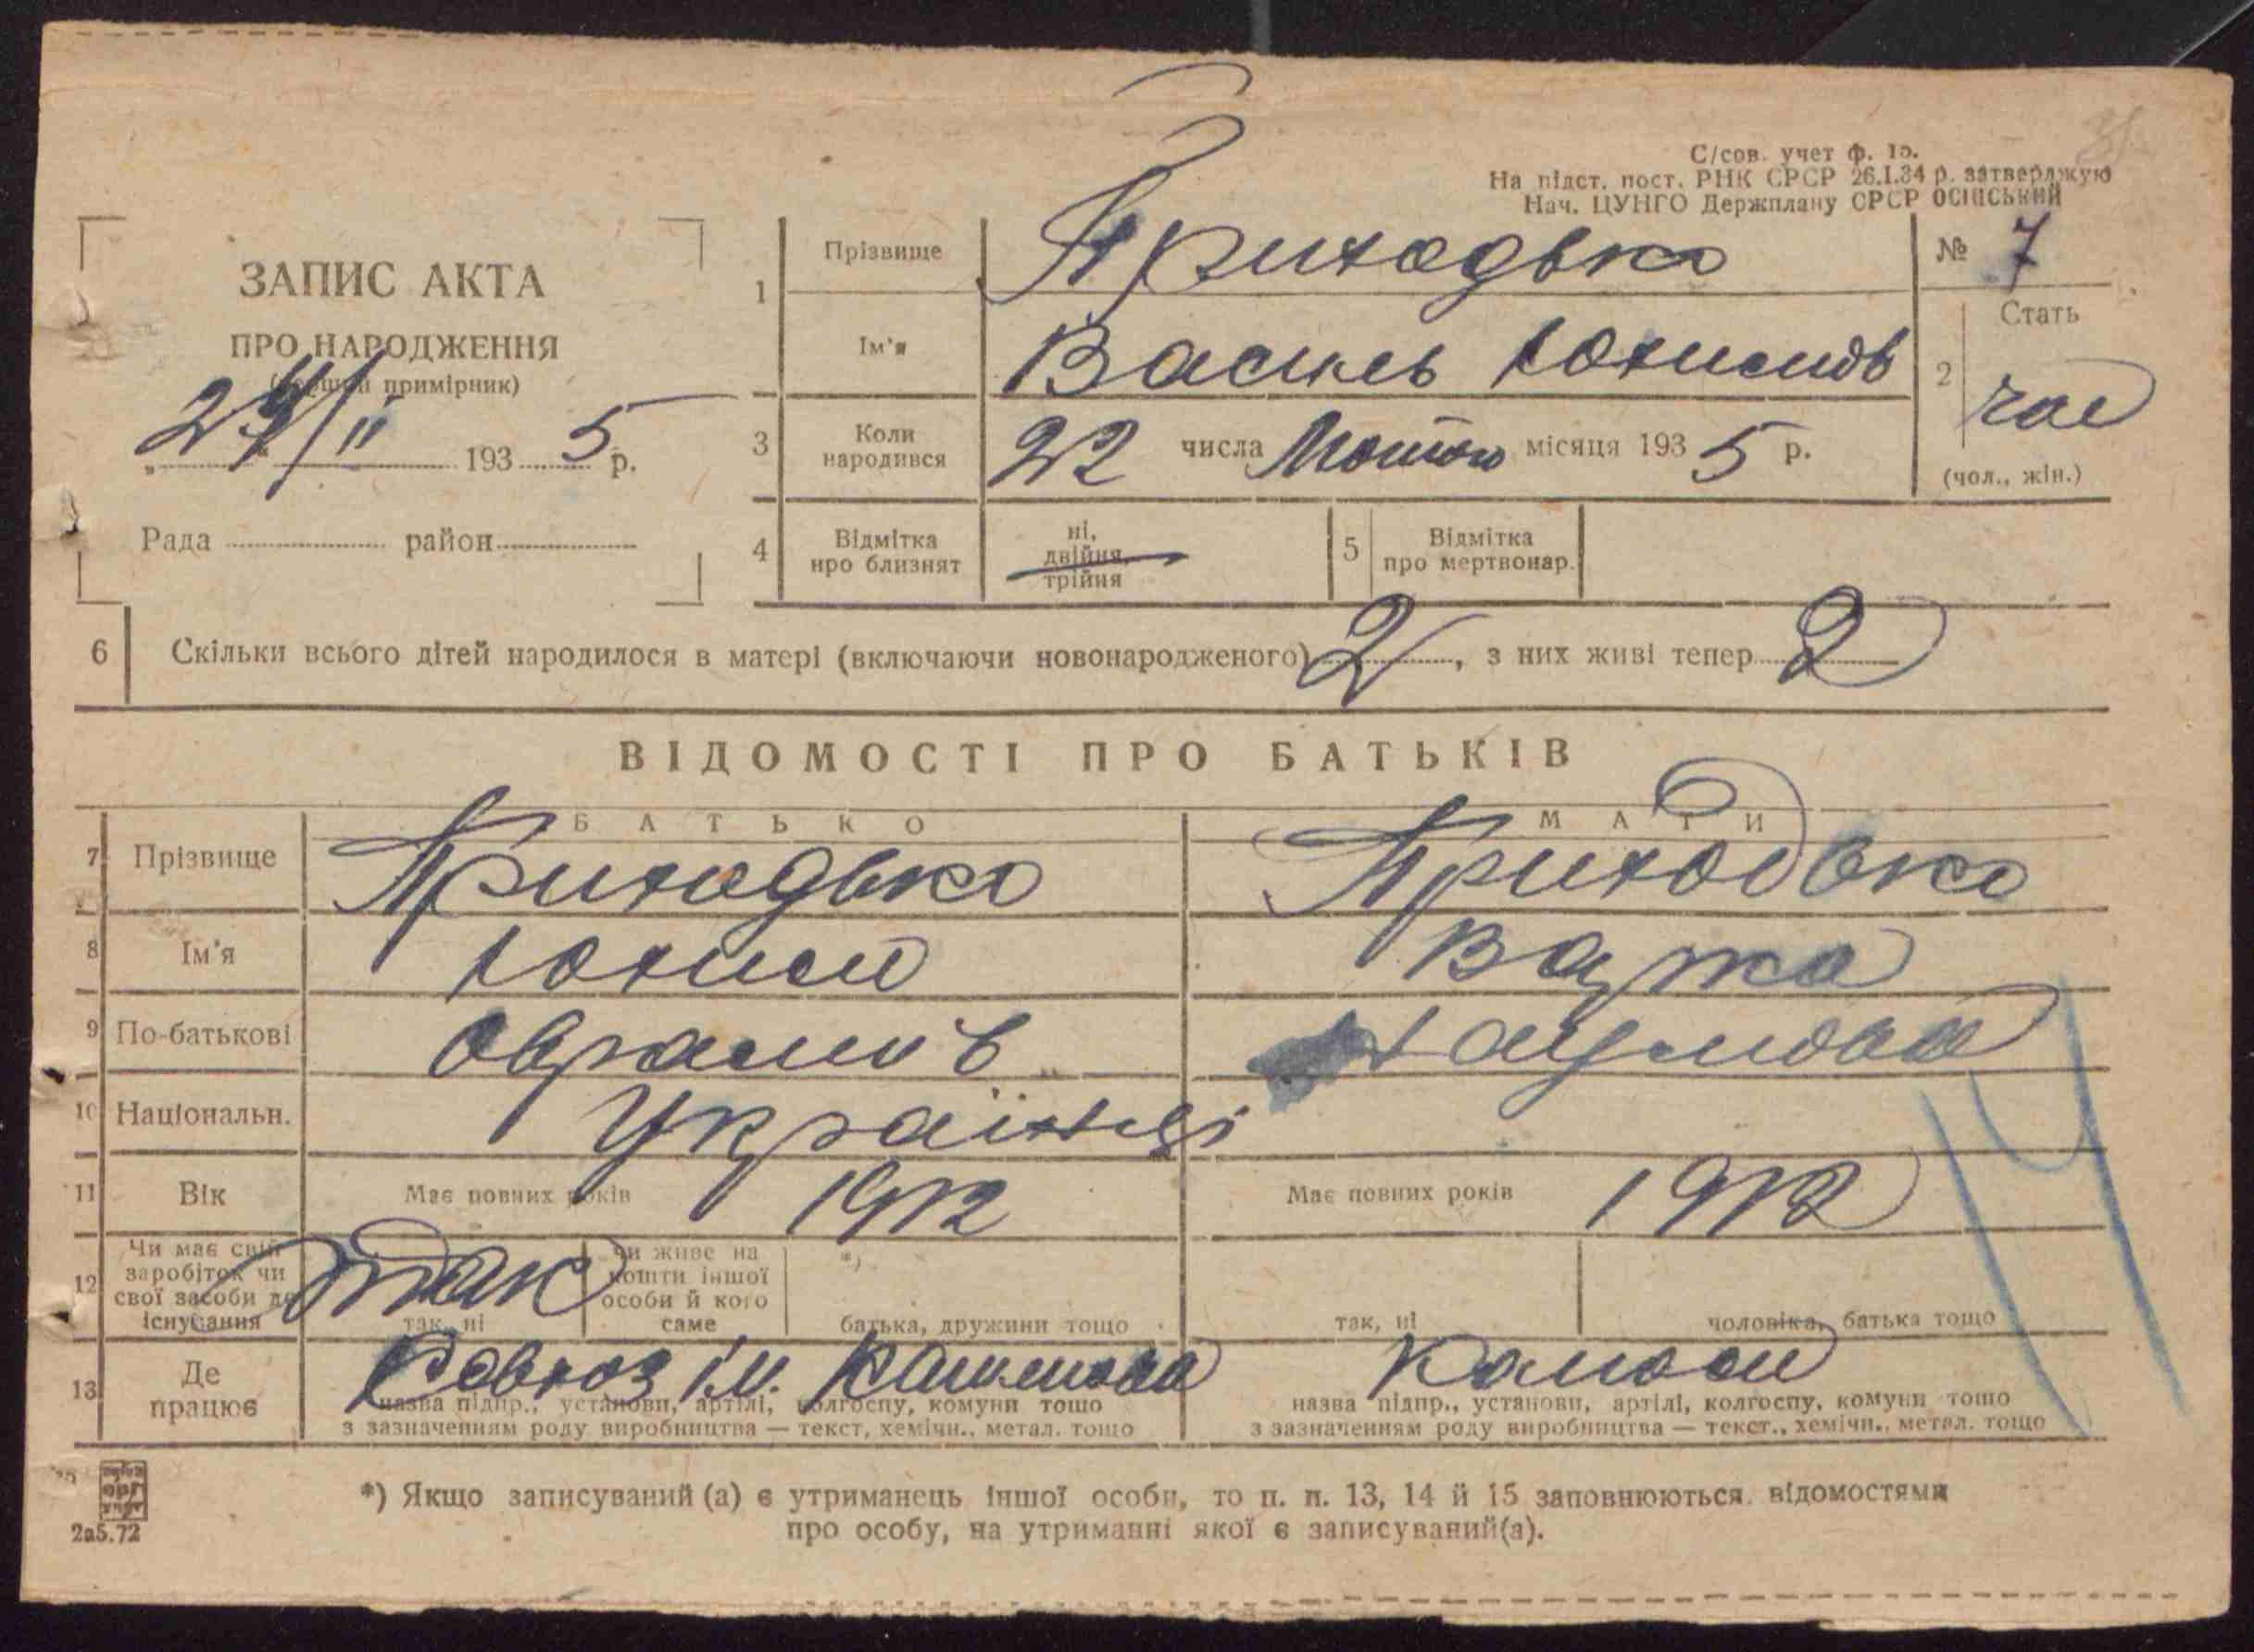 С/сов. учет ф. 1б.
На підст. пост. РНК СРСР 26.I.34 р. затверджую
Нач. ЦУНГО Держплану СРСР ОСІНСЬКИЙ
ЗАПИС АКТА
ПРО НАРОДЖЕННЯ
(перший примірник)
24/II 1935 р.
Рада район
1 Прізвище Приходько
№ 7
Ім'я Василь Юхимов
2 Стать чол
(чол., жін.)
3 Коли народився 22 числа Лютого місяця 1935 р.
4 Відмітка про близнят ні, двійня, трійня
5 Відмітка про мертвонар.
6 Скільки всього дітей народилося в матері (включаючи новонародженого) 2, з них живі тепер 2
ВІДОМОСТІ ПРО БАТЬКІВ
БАТЬКО МАТИ
7 Прізвище Приходько Приходько
8 Ім'я Юхим
9 По-батькові Оврамів Наумовна
10 Національн. Українці
11 Вік Має повних років 1912 Має повних років 1912
12 Чи має свій заробіток чи свої засоби до існування так
так, ні
чи живе на кошти іншої особи й кого саме
*)
батька, дружини тощо
так, ні
чоловіка, батька тощо
13 Де працює Совхоз ім.
назва підпр., установи, артілі, колгоспу, комуни тощо
з зазначенням роду виробництва — текст, хемічн., метал. тощо
назва підпр., установи, артілі, колгоспу, комуни тощо
з зазначенням роду виробництва — текст., хемічн., метал. тощо
*) Якщо записуваний (а) є утриманець іншої особи, то п. п. 13, 14 й 15 заповнюються відомостями
про особу, на утриманні якої є записуваний(а).
2а5.72